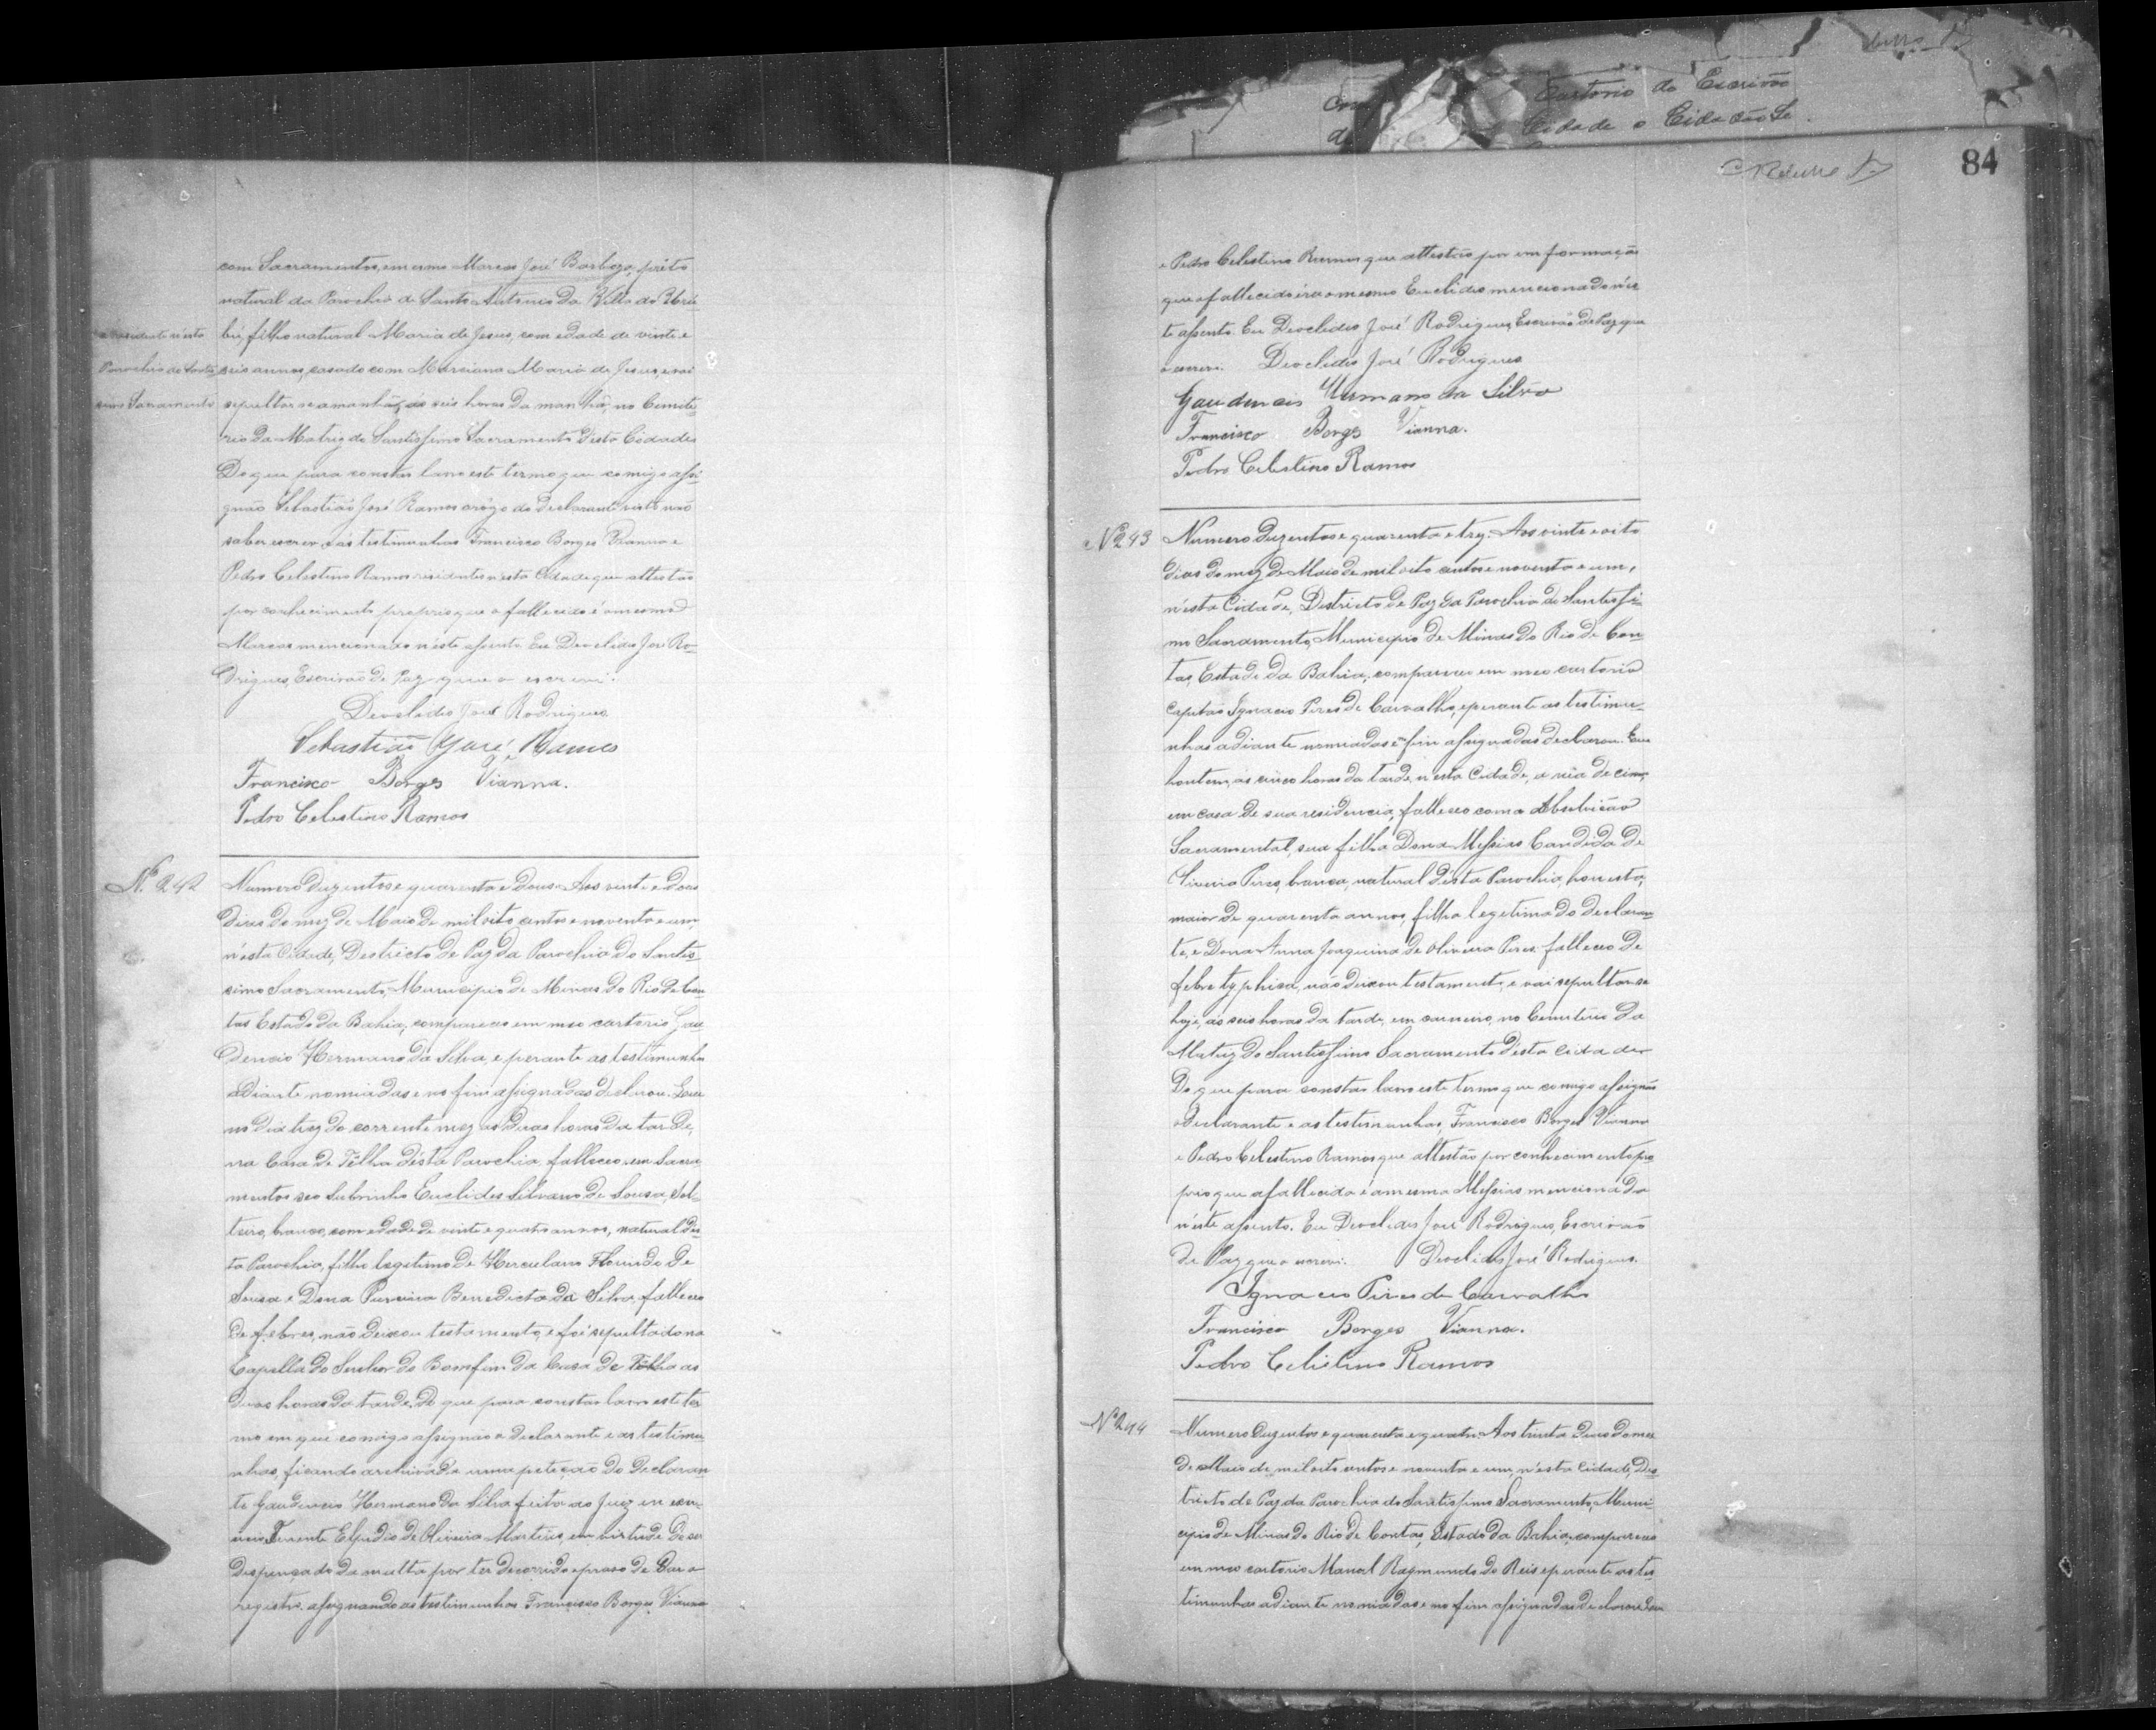 Cartorio do Escrivão
Cidade o Cidadão Se
84
com Sacramentos, em umo Marcos José Barboza, preto
natural da Parochia de Santo Antonio da Villa do Urú
bú, filho natural Maria de Jesus, com edade de vinte e
e residente n'esta
Parochia do Santis
simo Sacramento
seis annos, casado com Marciana Maria de Jesus, e vai
sepultar se amanhã, ás seis horas da manhã, no Cemite
rio da Matriz do Santissimo Sacramento d'esta Cidade.
Do que para constar lavro este termo que comigo assi
gnão Sebastião José Ramos arôgo do declarante visto não
saber escrever, e ás testimunhas Francisco Borges Vianna e
Pedro Celestino Ramos residentes n'esta Cidade que attestão
por conhecimento proprio que o fallecido é o mesmo
Marcos mencionado n'este assento. Eu Deoclides José Ro-
drigues, Escrivão de Paz que o escrevi.
Deoclides José Rodrigues
Sebastião José Ramos
Francisco Borges Vianna.
Pedro Celestino Ramos
Nº 242
Numero duzentos e quarenta e dous. Aos vinte e dous
dias do mez de Maio de mil oito centos e noventa e um,
n'esta Cidade, Districto de Paz da Parochia do Santis-
simo Sacramento, Municipio de Minas do Rio de Con-
tas Estado da Bahia, compareceo em meo cartorio Gau
dencio Hermano da Silva, e perante as testimunhas
adiante nomiadas e no fim assignadas declarou: Que
no dia trez do corrente mez as duas horas da tarde,
na Casa de Têlha d'esta Parochia, falleceo sem Sacra
mentos seo Subrinho Euclides Silvano de Sousa, Sol-
teiro, branco, com edade de vinte e quatro annos, natural des-
ta Parochia, filho legitimo de Herculano Florindo de
Sousa e Dona Purcina Benedicta da Silva, falleceo
de febres, não deixou testamento, e foi sepultado na
Capella do Senhor do Bomfim da Casa de Têlha as
duas horas da tarde. Do que para constar lavro este ter
mo em que comigo assignão o declarante e as testimu-
nhas, ficando archivada uma petição do declaran
te Gaudencio Hermano da Silva feita ao Juiz em exer-
cicio Tenente Elpidio de Oliveira Martins, em virtude de ser
despençado da multa por ter decorrido o praso de dar o
registro. assignando as testimunhas Francisco Borges Vianna
e Pedro Celestino Ramos que attestão por em formação
que o fallecido éra o mesmo Euclides mencionado n'es
te assento. Eu Deoclides José Rodrigues, Escrivão de Paz que
o escrevi. Deoclides José Rodrigues
Gaudencio Hermano da Silva
Francisco Borges Vianna.
Pedro Celestino Ramos
Nº 243
Numero duzentos e quarenta e trez. Aos vinte e oito
dias do mez de Maio de mil oito centos e noventa e um,
n'esta Cidade, Districto de Paz da Parochia do Santissi-
mo Sacramento, Municipio de Minas do Rio de Con
tas, Estado da Bahia, compareceo em meo cartorio
Capitão Ignacio Pires de Carvalho, e perante as testimu-
nhas adiante nomiadas e no fim assignadas declarou: Que
hontem, as cinco horas da tarde, n'esta Cidade, a rúa de cima,
em casa de sua residencia, falleceo com a Absolvição
Sacramental, sua filha Dona Messias Candida de
Oliveira Pires, branca, natural d'esta Parochia, honesta,
maior de quarenta annos, filha legitima do declaran
te, e Dona Anna Joaquina de Oliveira Pires: falleceo de
febre typhica, não deixou testamento, e vai sepultar-se
hoje, ás seis horas da tarde, em carneiro, no Cemiterio da
Matriz do Santissimo Sacramento d'esta Cidade.
Do que para constar lavro este termo que comigo assignão
o declarante e as testimunhas, Francisco Borges Vianna
e Pedro Celestino Ramos que attestão por conhecimento pro
prio que a fallecida é a mesma Messias mencionada
n'este assento. Eu Deoclides José Rodrigues, Escrivão
de Paz que o escrevi. Deoclides José Rodrigues.
Ignacio Pires de Carvalho
Francisco Borges Vianna.
Pedro Celestino Ramos
Nº 244
Numero duzentos e quarenta e quatro. Aos trinta dias do mez
de Maio de mil oito centos e noventa e um, n'esta Cidade, Dis
tricto de Paz da Parochia do Santissimo Sacramento, Muni
cipio de Minas do Rio de Contas, Estado da Bahia, compareceo
em meo cartorio Manoel Raymundo do Reis e perante as tes
timunhas adiante nomiadas e no fim assignadas declarou: Que